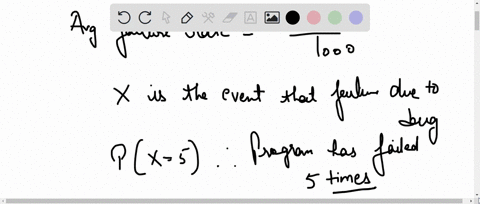 Avg failure rate =
1000
X is the event that failure due to
bug
P(X=5) ∴ Program has failed
5 times